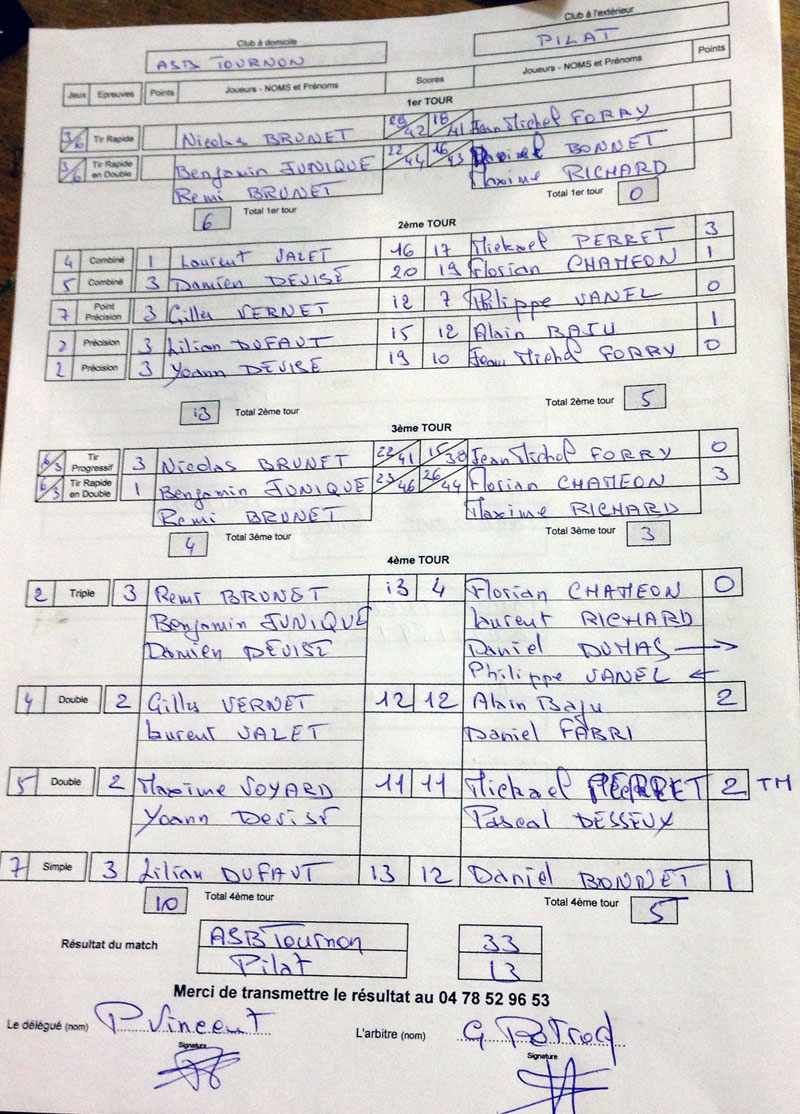 Club à domicile Club à l'extérieur
ASB TOURNON PILAT
Jeux Epreuves Points Joueurs - NOMS et Prénoms Scores Joueurs - NOMS et Prénoms Points
1er TOUR
3/6 Tir Rapide Nicolas BRUNET 42 18/41 Jean Michel FORRY
3/6 Tir Rapide en Double Benjamin JUNIQUE 22/44 16/43 BONNET
Remi BRUNET Maxime RICHARD
6 Total 1er tour Total 1er tour 0
2ème TOUR
4 Combiné 1 Laurent VALET 16 17 Mickael PERRET 3
5 Combiné 3 Damien DEVISE 20 19 Florian CHAMEON 1
7 Point Précision 3 Gilles VERNET 12 7 Philippe VANEL 0
2 Précision 3 Lilian DUFAUT 15 12 Alain BAJU 1
2 Précision 3 Yoann DEVISE 19 10 Jean Michel FORRY 0
13 Total 2ème tour Total 2ème tour 5
3ème TOUR
6/3 Tir Progressif 3 Nicolas BRUNET 22/41 15/38 Jean Michel FORRY 0
6/3 Tir Rapide en Double 1 Benjamin JUNIQUE 23/46 26/44 Florian CHAMEON 3
Remi BRUNET Maxime RICHARD
4 Total 3ème tour Total 3ème tour 3
4ème TOUR
2 Triple 3 Remi BRUNET 13 4 Florian CHAMEON 0
Benjamin JUNIQUE Laurent RICHARD
Damien DEVISE Daniel DUMAS →
Philippe VANEL ←
4 Double 2 Gilles VERNET 12 12 Alain Baju 2
Laurent VALET Daniel FABRI
5 Double 2 Maxime VOYARD 11 11 Mickael PERRET 2 TM
Yoann Devise Pascal DESSEUX
7 Simple 3 Lilian DUFAUT 13 12 Daniel BONNET 1
10 Total 4ème tour Total 4ème tour 5
Résultat du match ASB Tournon 33
Pilat 13
Merci de transmettre le résultat au 04 78 52 96 53
Le délégué (nom) P Vincent L'arbitre (nom) G
Signature Signature